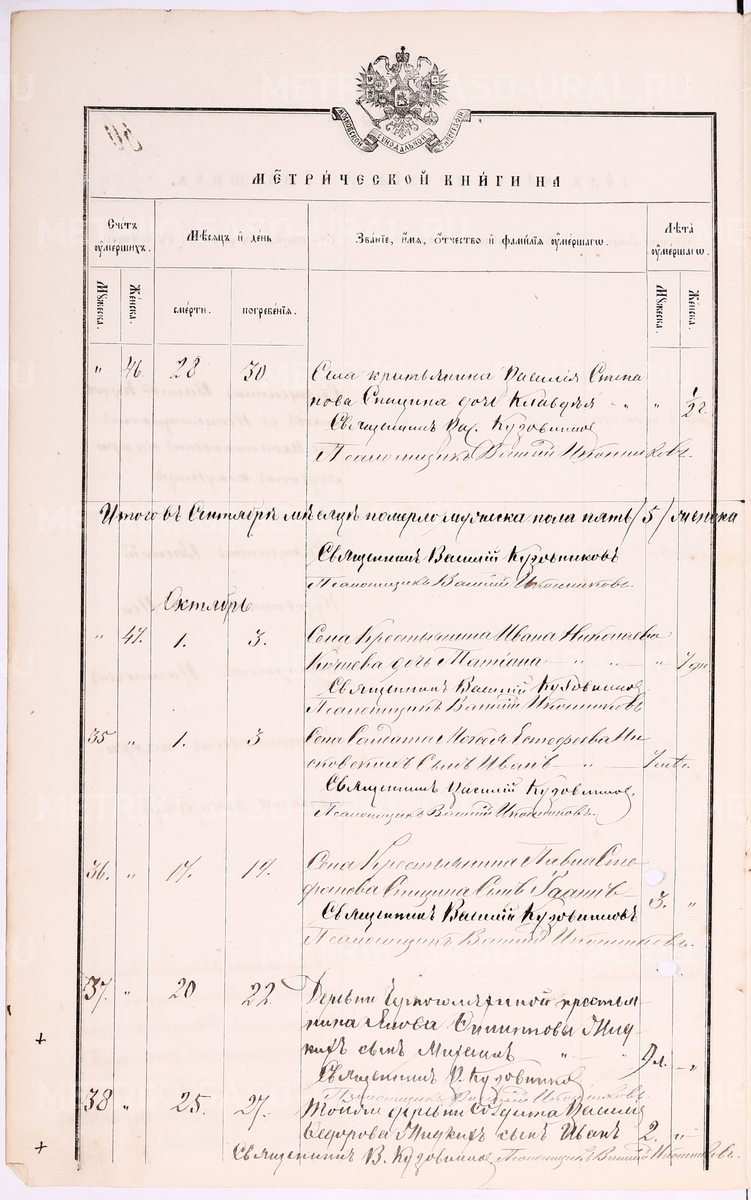 МОСКОВСКОЙ СѴНОДАЛЬНОЙ ТИПОГРАФІИ
МЕТРИ́ЧЕСКОЙ КНИ́ГИ НА
Сче́тъ ᲂу҆ме́ршихъ.
Мѣ́сѧцъ и҆ де́нь
Зва́нїе, и҆́мѧ, ѻ҆́тчество и҆ фами́лїѧ ᲂу҆ме́ршагѡ.
Лѣ́та ᲂу҆ме́ршагѡ.
Мꙋ́жеска.
Же́нска.
сме́рти.
погребе́нїѧ.
Мꙋ́жеска.
Же́нска.
" 46. 28 30. Села крестьянина Василія Степа
нова Спицина дочь Клавдія " " 1/2 г.
Священникъ Вас. Кузовниковъ
Псаломщикъ Василій Иконниковъ.
Итого въ Сентябрѣ мѣсяцѣ померло мужеска пола пять /5/ женска
Священникъ Василій Кузовниковъ
Псаломщикъ Василій Иконниковъ.
Октябрь
" 47. 1. 3. Села Крестьянина Ивана Николаева
дочь Татіана " " "
Священникъ Василій Кузовниковъ
Псаломщикъ Василій Иконниковъ
35 " 1. 3 Села Солдата
сынъ Иванъ "
Священникъ Василій Кузовниковъ.
Псаломщикъ Василій Иконниковъ.
36. " 17. 19. Села Крестьянина Павла Сте
фанова Спицина сынъ 3. "
Священникъ Василій Кузовниковъ
Псаломщикъ Василій Иконниковъ.
37. " 20 22 Деревни крестья
нина Якова Филиппова Жид
кихъ сынъ Михаилъ " " "
Священникъ В. Кузовниковъ
Псаломщикъ Василій Иконниковъ
38 " 25. 27. Тойже деревни солдата Василія
Ѳедорова Жидкихъ сынъ Иванъ 2. "
Священникъ В. Кузовниковъ. Псаломщикъ Василій Иконниковъ.